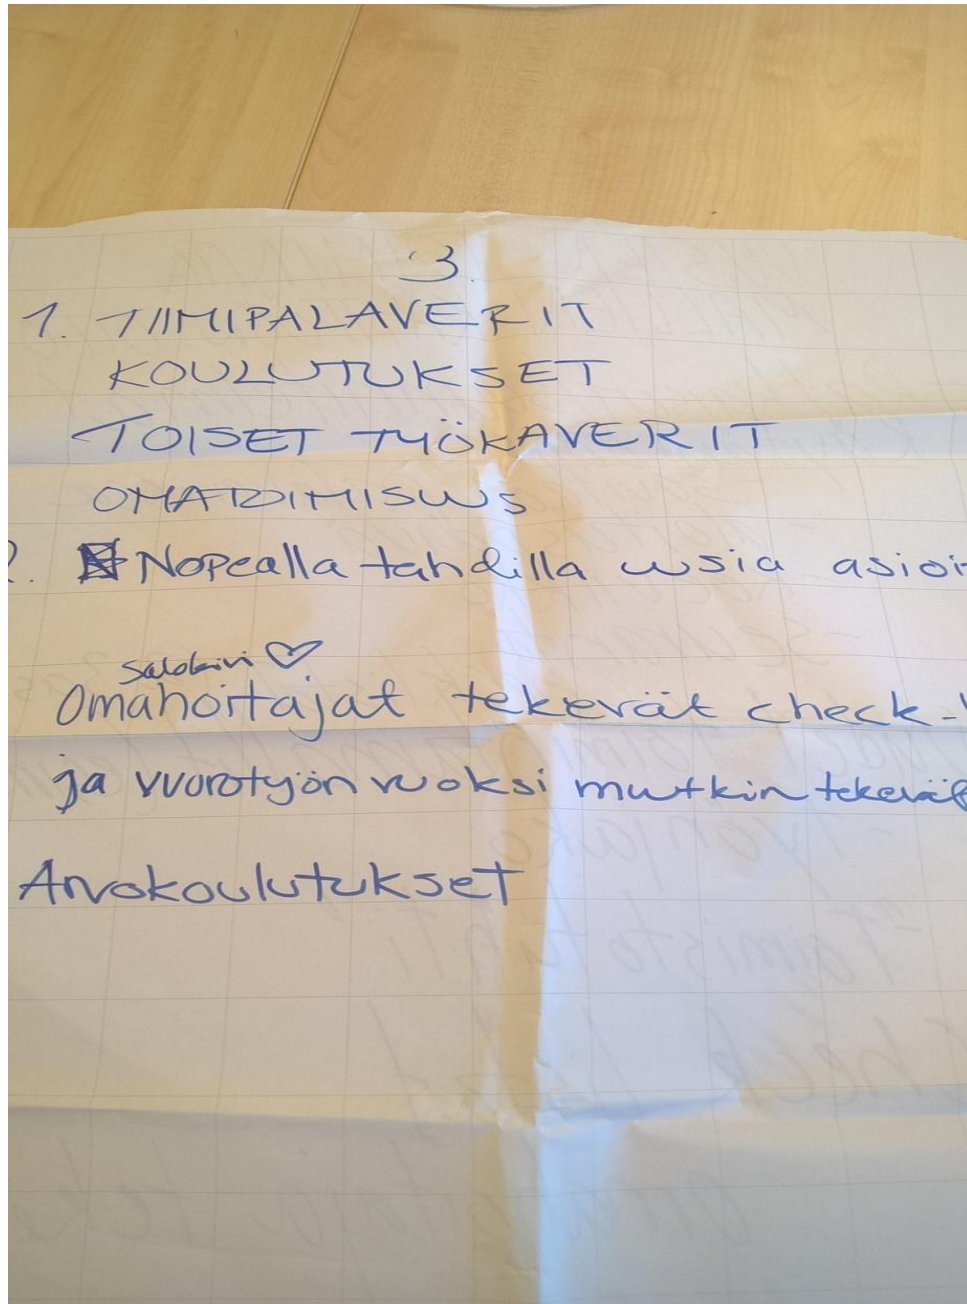 3.
1. TIIMIPALAVERIT
KOULUTUKSET
TOISET TYÖKAVERIT
2. Nopealla tahdilla uusia asioi
♡
Omahoitajat tekevät check-
ja vuorotyön vuoksi muutkin tekevät
Arvokoulutukset